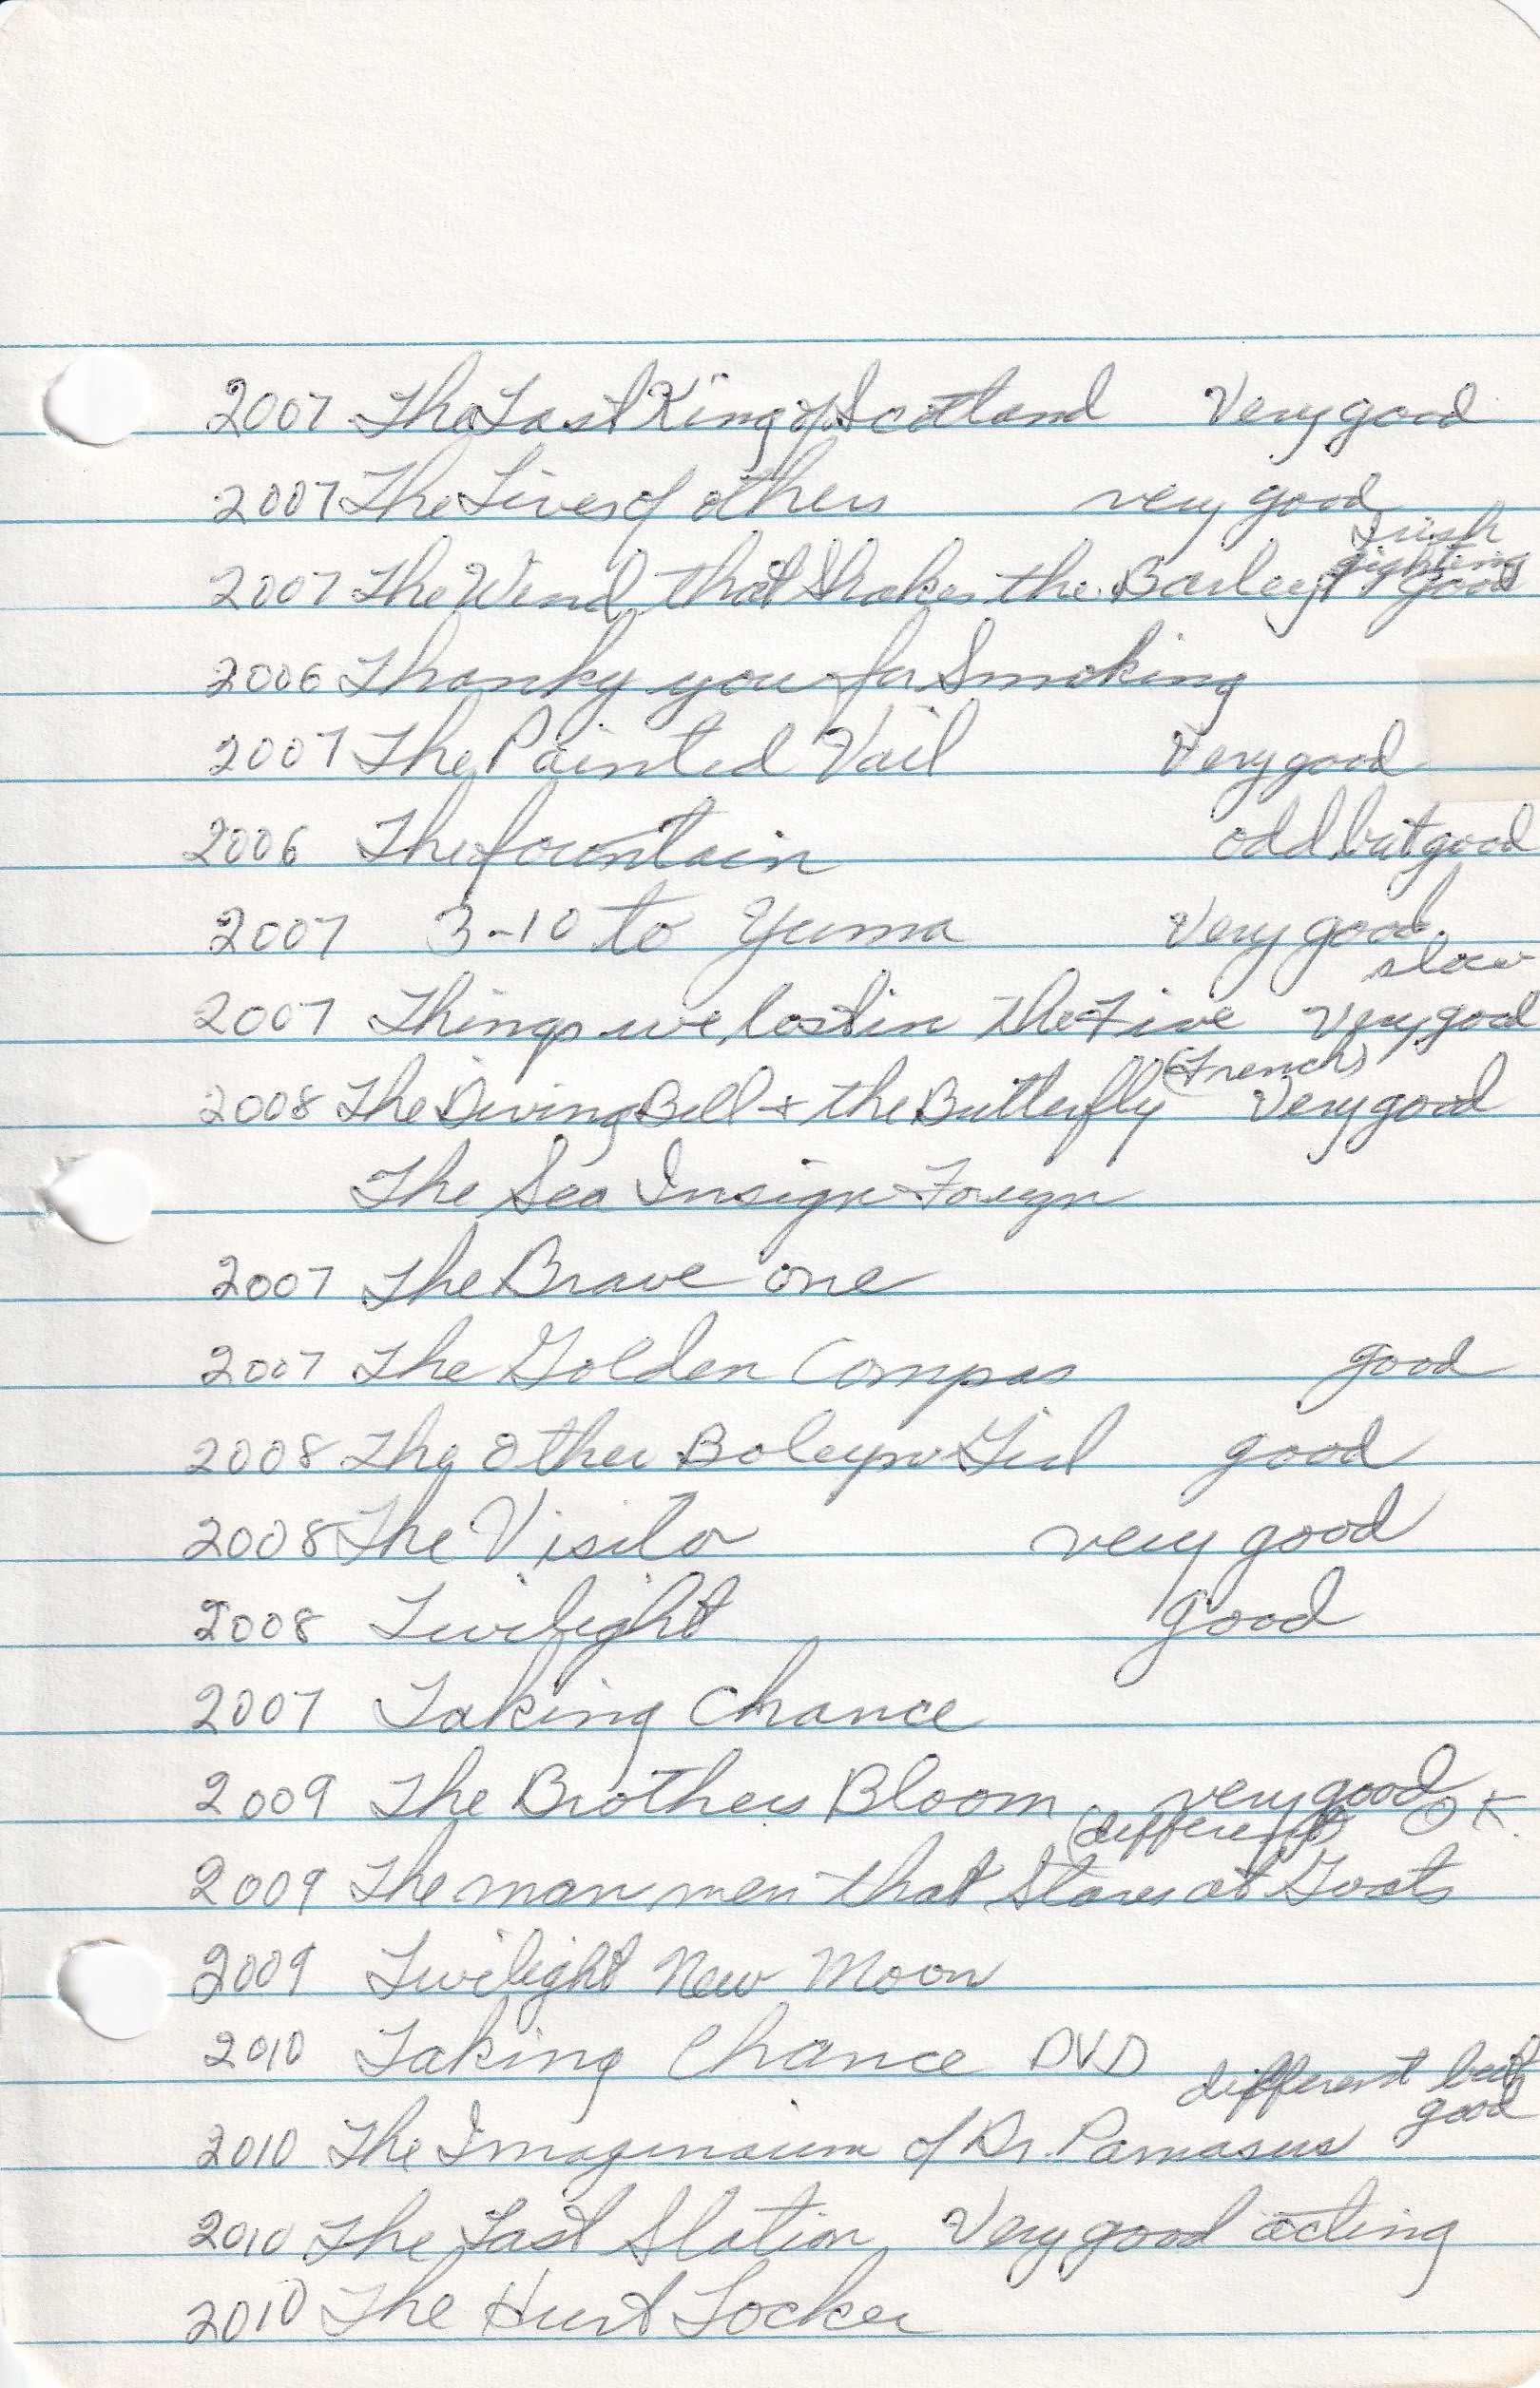 2007 The Last King of Scotland Very good
2007 The Lives of others very good
Irish
fighting
2007 The Wind that Shakes the Barley good
2006 Thanky you for Smoking
2007 The Painted Vail Very good
2006 The fountain odd but good
2007 3-10 to Yuma Very good
slow
2007 Things we lost in the Fire Very good
(French)
2008 The Diving Bell + the Butterfly Very good
The Sea Insign Foregn
2007 The Brave one
2007 The Golden Compas good
2008 The Other Boleyn Girl good
2008 The Visitor very good
2008 Twilight good
2007 Taking Chance
2009 The Brothers Bloom very good
(different) OK.
2009 The man men that Stares at Goats
2009 Twilight New Moon
2010 Taking Chance DVD
different but
good
2010 The Imaginaium of Dr. Parnasus
2010 The Last Station Very good acting
2010 The Hurt Locker